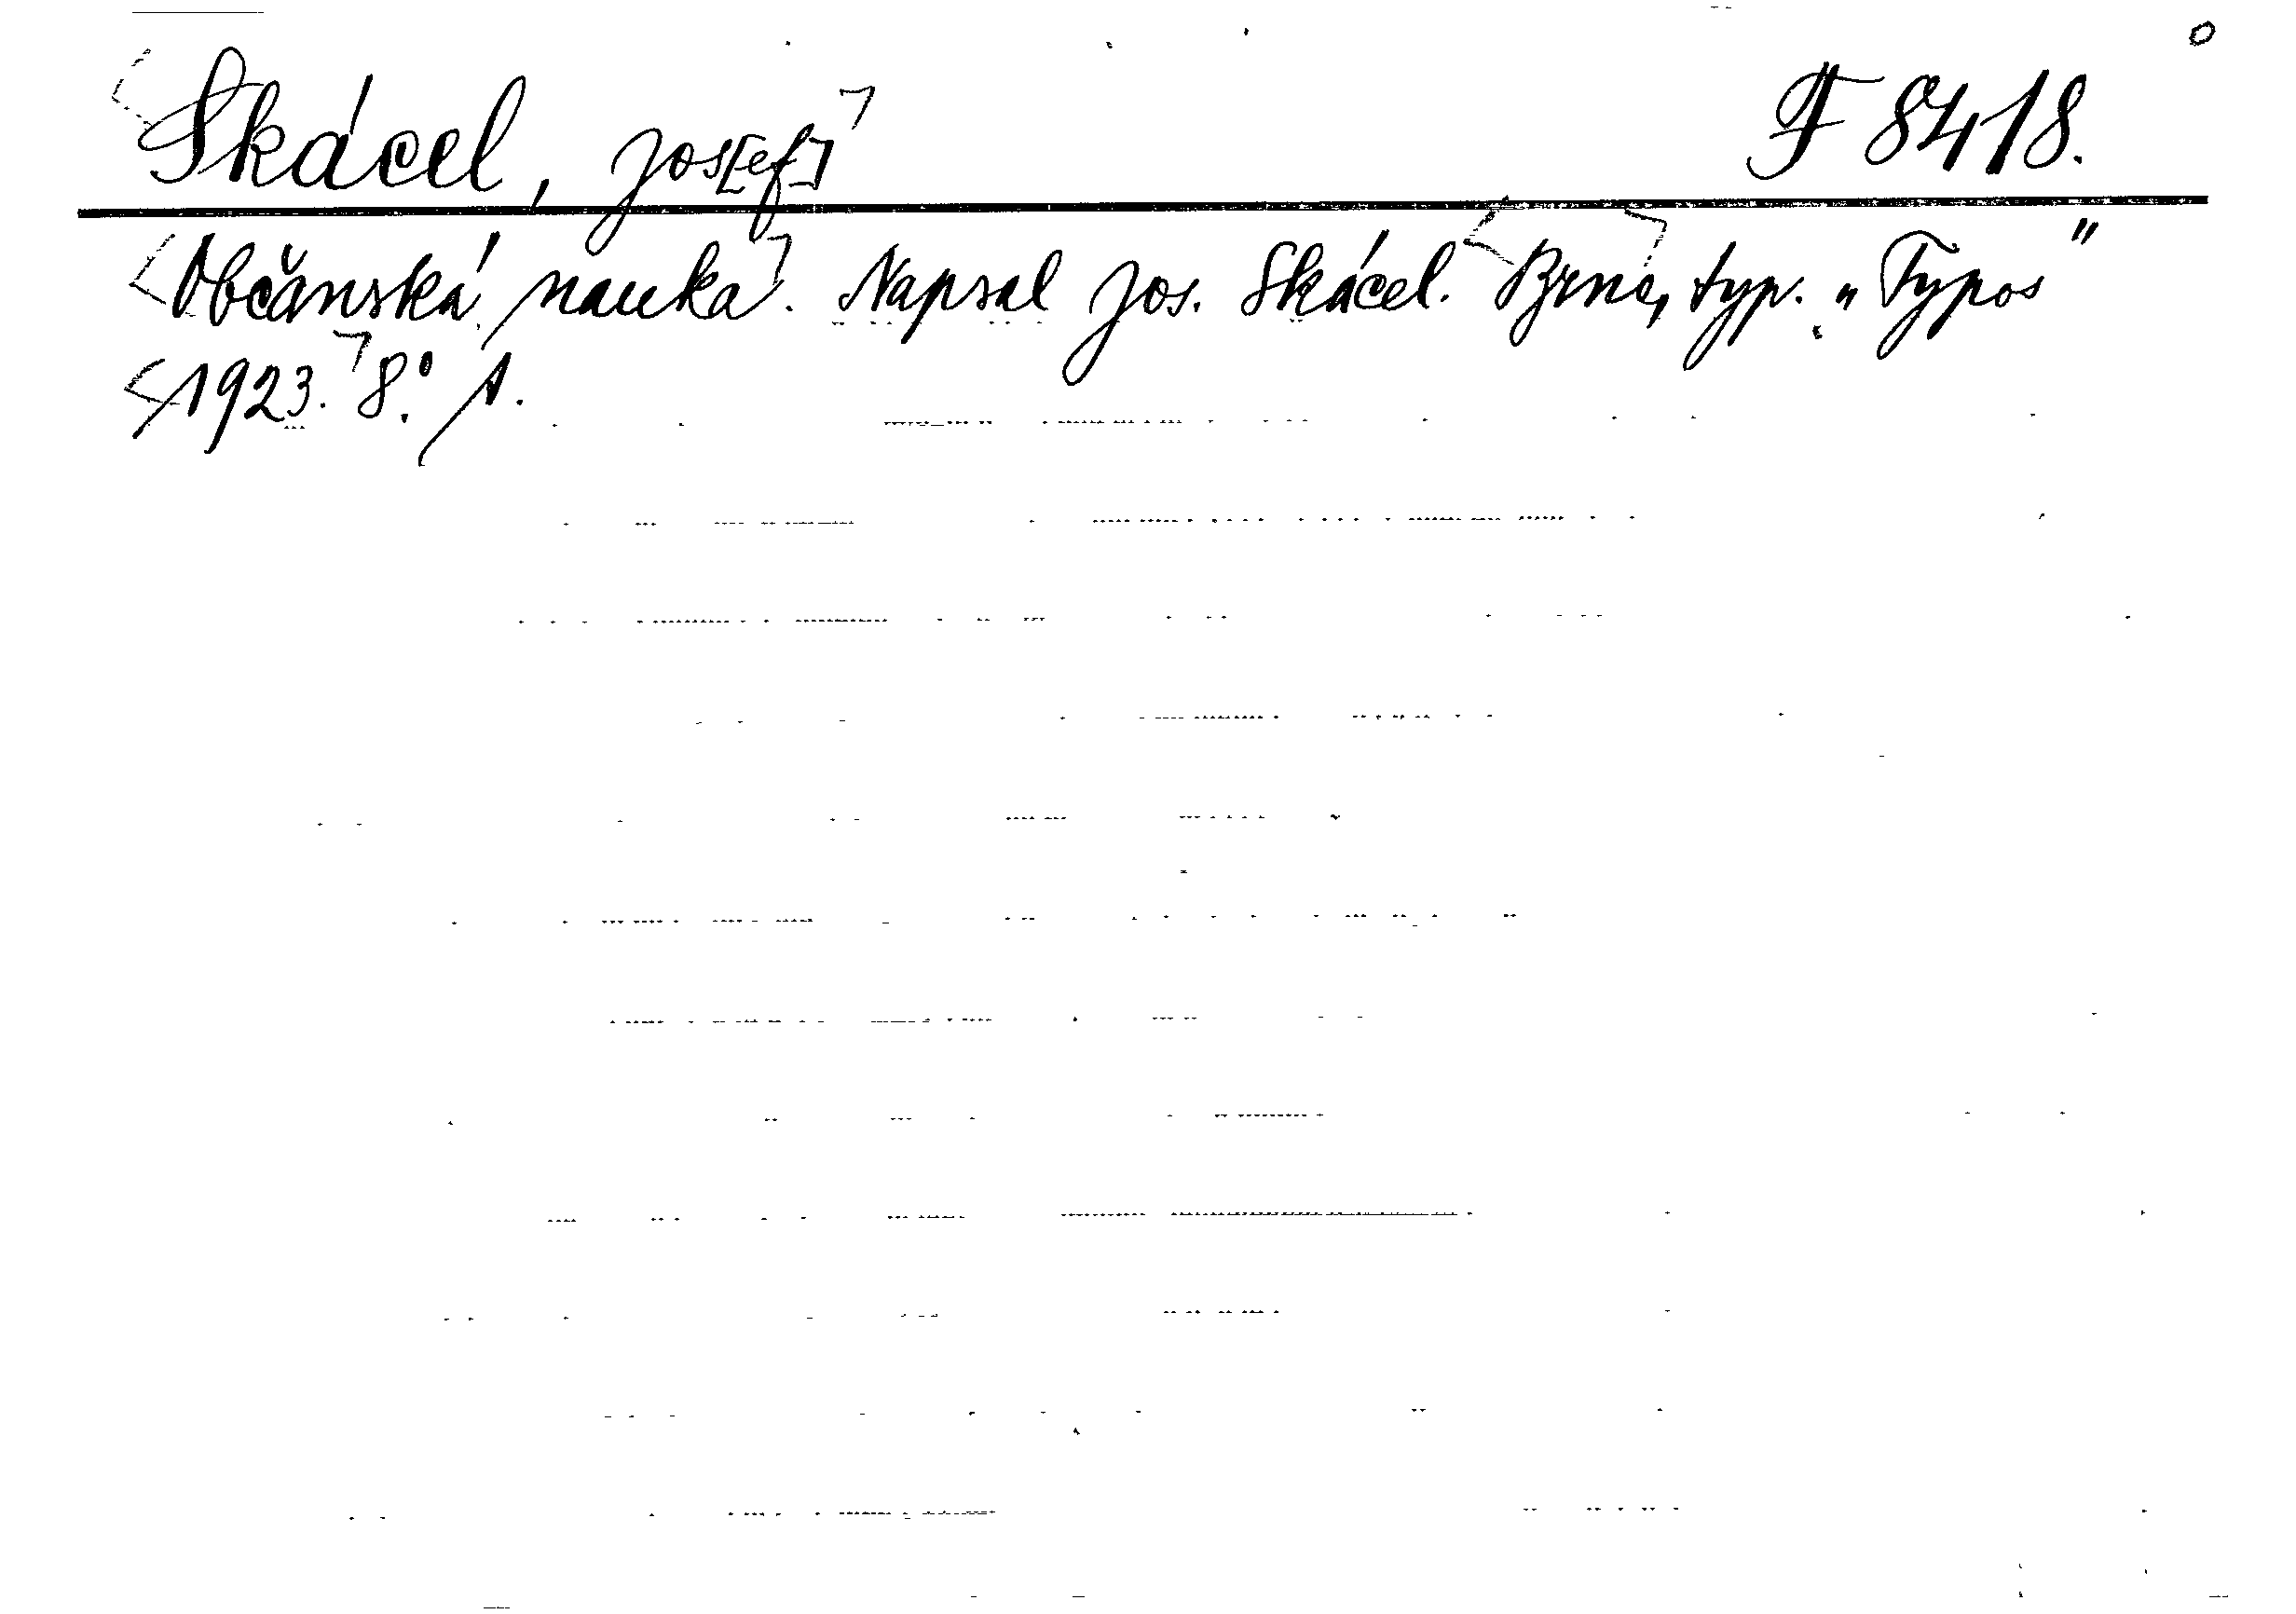 Skácel, Jos[ef] F 8418.
Občanská nauka. Napsal Jos. Skácel. Brno, typ. „Typos"
1923. 8.° 1.